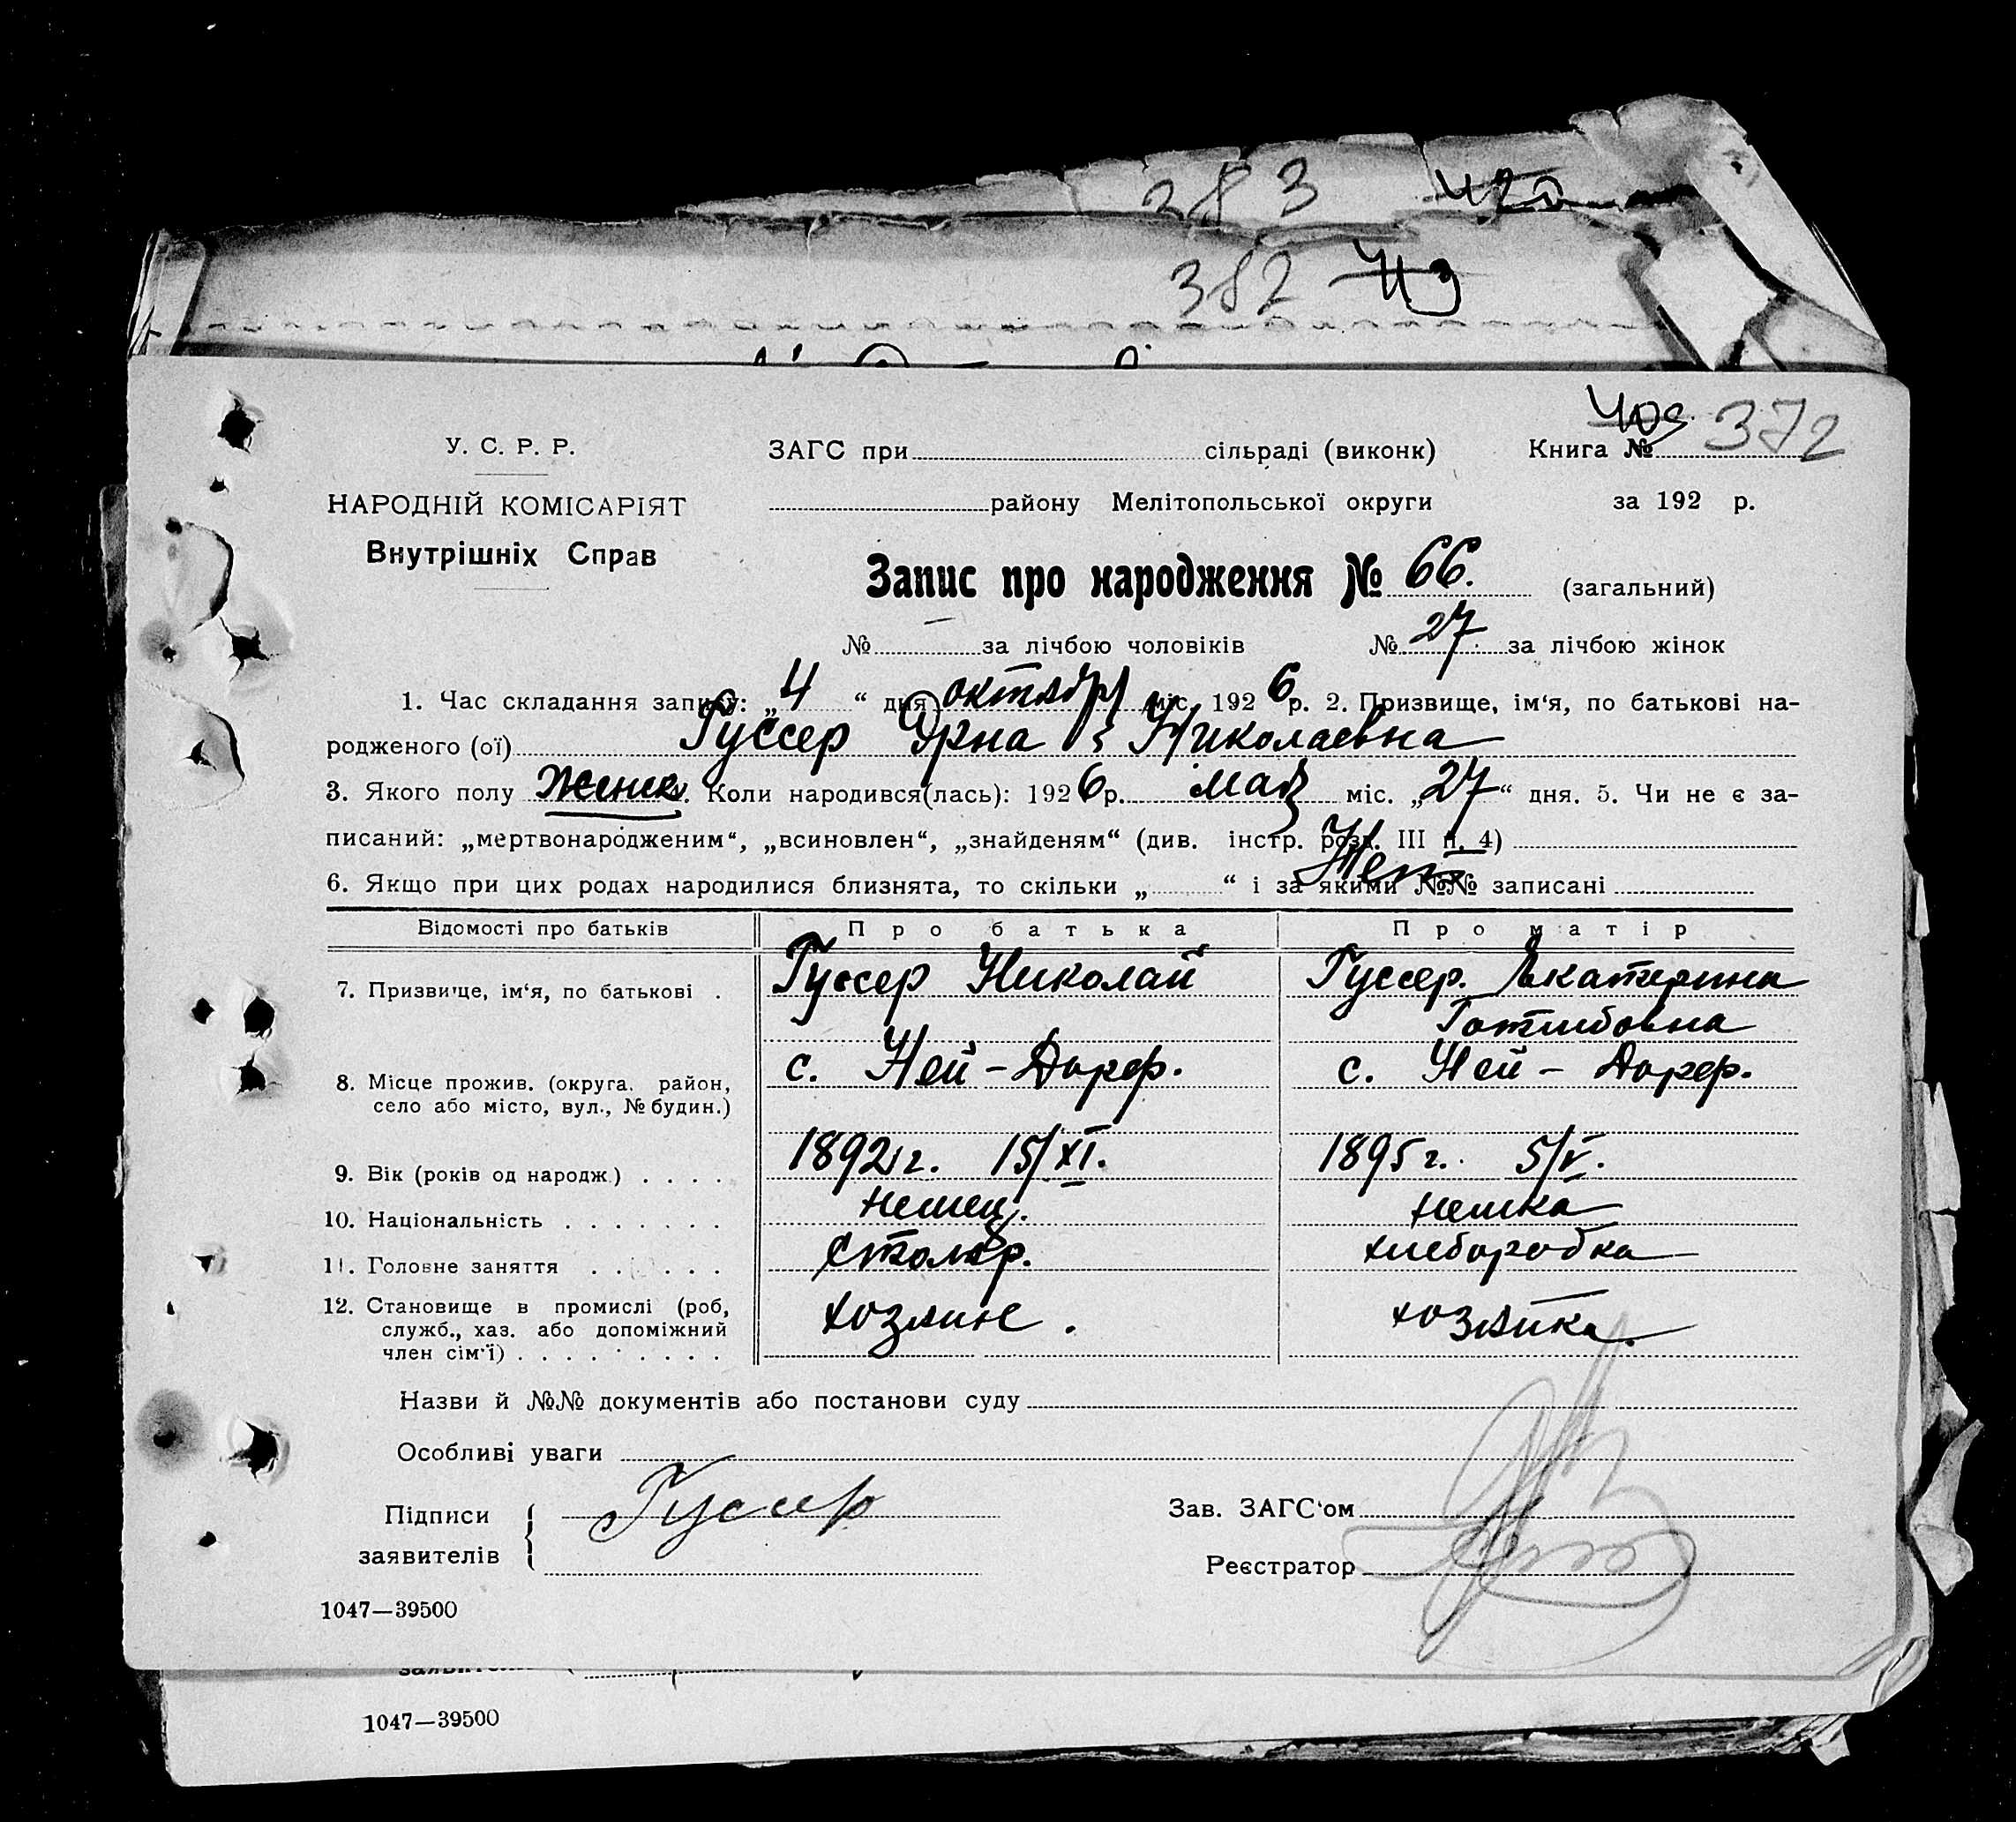 283 420
382 413
403 372
У. С. Р. Р. ЗАГС при сільраді (виконк) Книга №
НАРОДНІЙ КОМІСАРІЯТ району Мелітопольської округи за 192 р.
Внутрішніх Справ
Запис про народження № 66. (загальний)
№ — за лічбою чоловіків № 27. за лічбою жінок
1. Час складання запису: „4“ дня октября міс. 1926 р. 2. Призвище, ім‘я, по батькові на-
родженого (ої) Гуссер Эрна Николаевна
3. Якого полу женск. Коли народився(лась): 1926 р. мая міс. „27“ дня. 5. Чи не є за-
писаний: „мертвонародженим“, „всиновлен“, „знайденям“ (див. інстр. розд. III п. 4)
Нет
6. Якщо при цих родах народилися близнята, то скільки „ “ і за якими №№ записані
Відомості про батьків Про батька Про матір
7. Призвище, ім‘я, по батькові . Гуссер Николай Гуссер. Екатерина
Готлибовна
8. Місце прожив. (округа. район, с. Ней-Дорф. с. Ней-Дорф.
село або місто, вул., № будин.)
9. Вік (років од народж.) . . . . 1892 г. 15/XI. 1895 г. 5/V.
10. Національність . . . . . . . немец. немка
11. Головне заняття . . . . . . столяр. хлеборобка
12. Становище в промислі (роб, хозяин. хозяйка.
служб., хаз. або допоміжний
член сім‘ї) . . . . . . . . .
Назви й №№ документів або постанови суду
Особливі уваги
Підписи Гуссер Зав. ЗАГС‘ом
заявителів Реєстратор
1047—39500
1047—39500